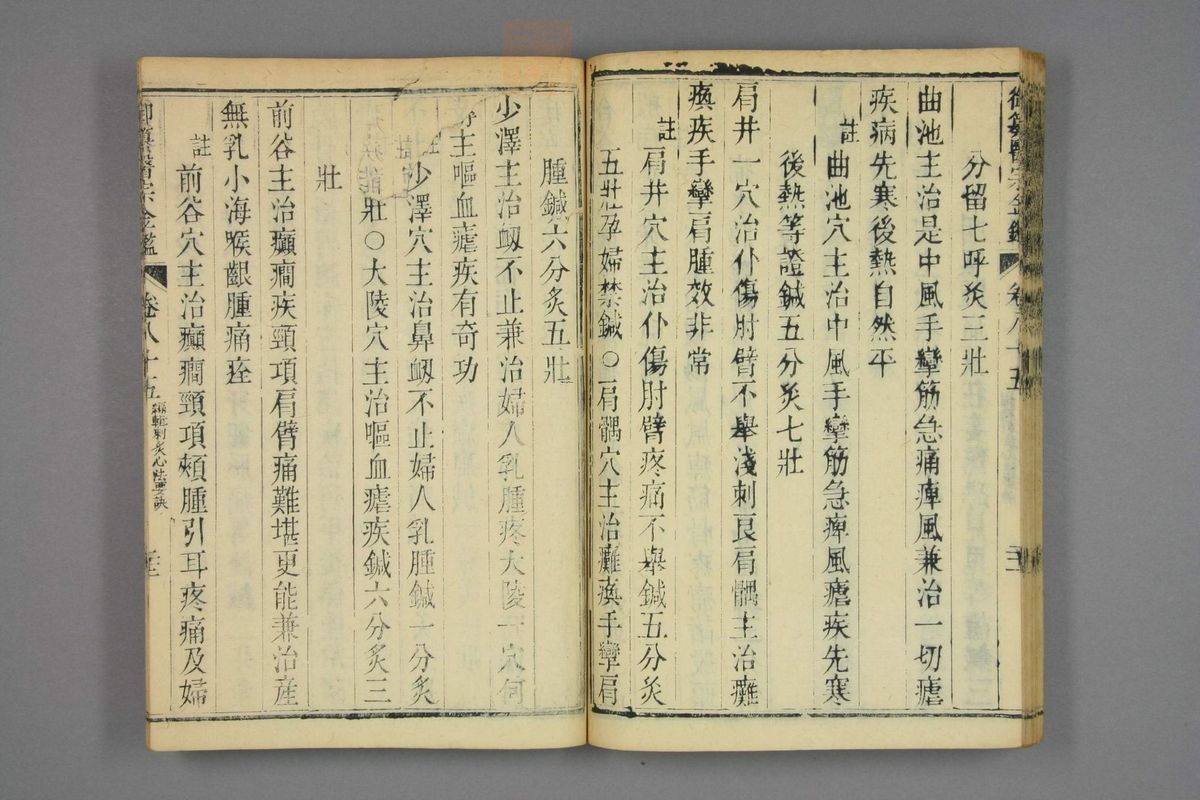 御纂醫宗金鑑 卷八十五
分留七呼灸三壯
曲池主治是中風手攣筋急痛痺風兼治一切瘧
疾病先寒後熱自然平
註 曲池穴主治中風手攣筋急痺風瘧疾先寒
後熱等證鍼五分灸七壯
肩井一穴治仆傷肘臂不舉淺刺良肩髃主治癱
瘓疾手攣肩腫效非常
註 肩井穴主治仆傷肘臂疼痛不舉鍼五分灸
五壯孕婦禁鍼○肩髃穴主治癱瘓手攣肩
腫鍼六分灸五壯
少澤主治衂不止兼治婦人乳腫疼大陵一穴何
主嘔血瘧疾有奇功
註 少澤穴主治鼻衂不止婦人乳腫鍼一分灸
壯○大陵穴主治嘔血瘧疾鍼六分灸三
壯
前谷主治癲癎疾頸項肩臂痛難堪更能兼治產
無乳小海喉齦腫痛痊
註 前谷穴主治癲癎頸項頰腫引耳疼痛及婦
御纂醫宗金鑑 卷八十五 編輯刺灸心法要訣